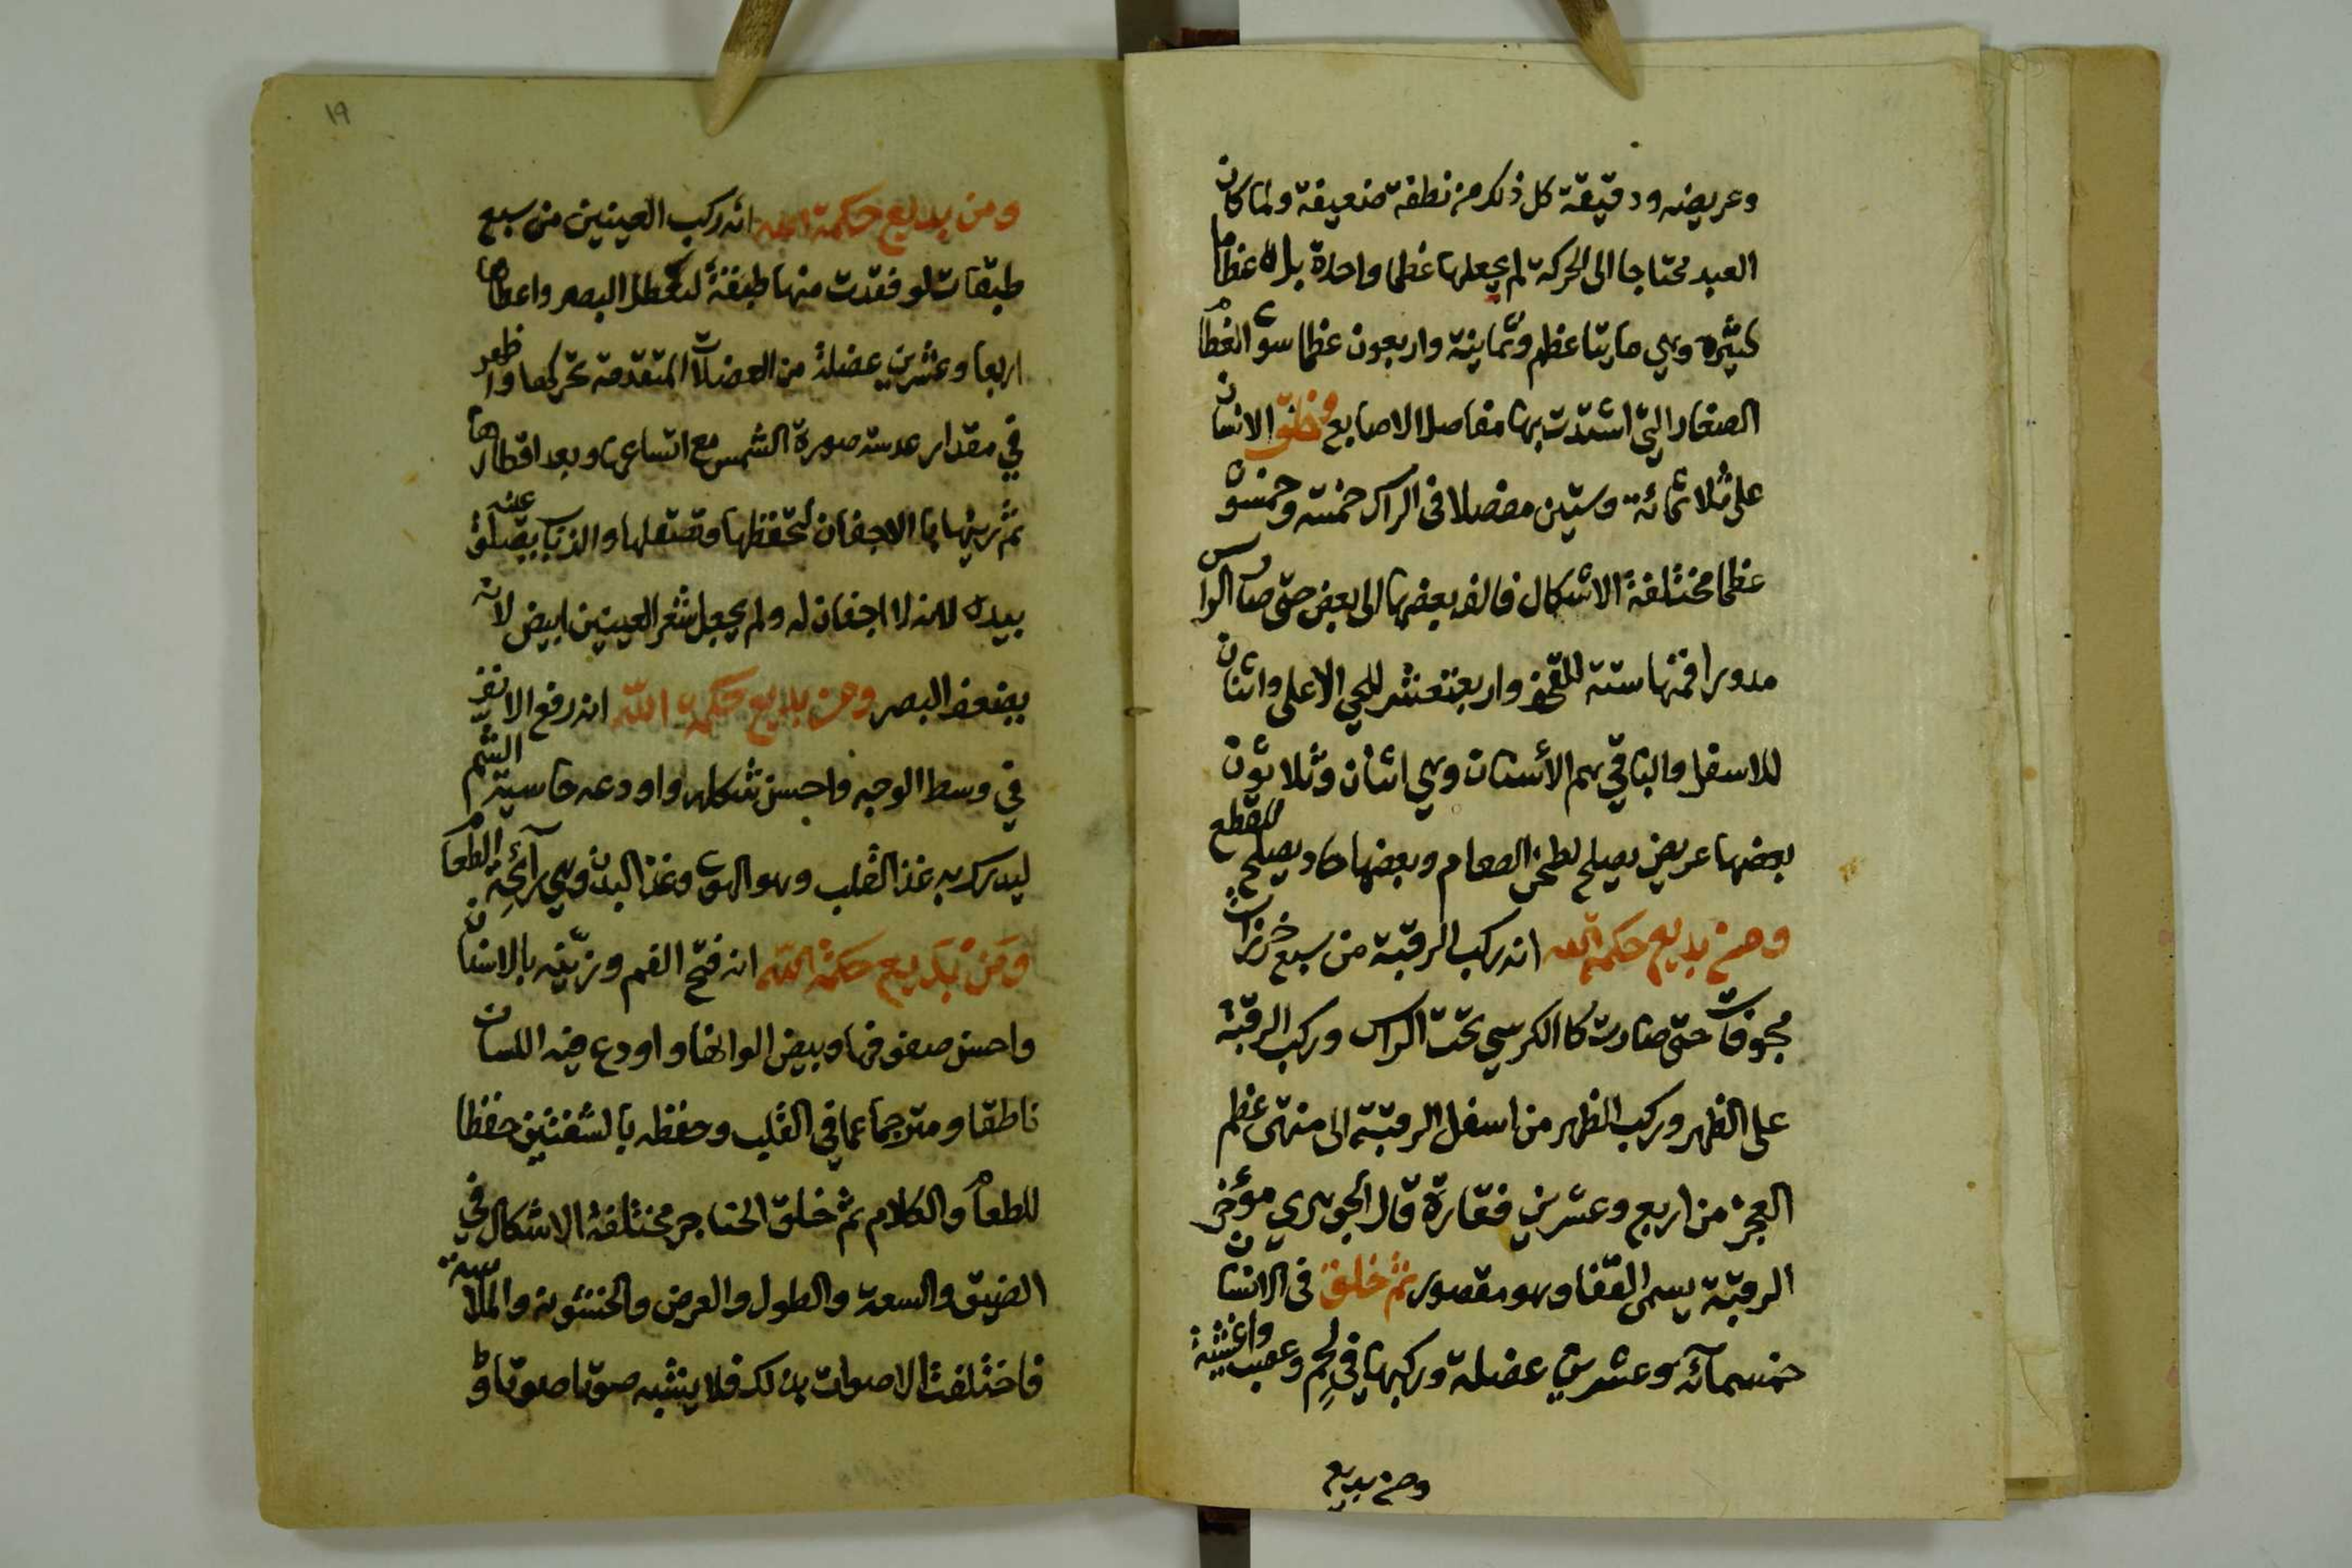 وعريضه ودقيقة كل ذلك من نطفة ضعيفة ولما كان
العبد محتاجا الى الحركة لم يجعلها عظما واحدة بل له عظاما
كثيره وهي مايتا عظم وثمانية واربعون عظما سوى العظام
الصغار التي اشتدت بها مفاصل الاصابع وخلق الانسان
على ثلاثمائة وستين مفصلا فى الراس خمسة وخمسون
عظما مختلفة الاشكال فالف بعضها الى بعض حتى صار الراس
مدورا فمنها ستة للقحف واربعة عشر للحي الاعلى واثنان
للاسفل والباقي هم الأسنان وهي اثنان وثلاثون
بعضها عريض يصلح لطحن الطعام وبعضها حاد يصلح للقطع
ومن بديع حكمة الله انه ركب الرقبة من سبع خرزات
مجوفات حتى صارت كا الكرسي تحت الراس وركب الرقبة
على الظهر وركب الظهر من اسفل الرقبة الى منتهى عظم
العجز من اربع وعشرين فقارة قال الجوهري مؤخر
الرقبة يسمى القفا وهو مقصور ثم خلق فى الانسان
خمسمائة وعشرين عضلة وركبها في لحم وعصب واغشية
ومن بديع
١٩
ومن بديع حكمة الله انه ركب العينين من سبع
طبقات لو فقدت منها طبقة لتعطل البصر واعطاها
اربعا وعشرين عضلة من العضلات المتقدمة تحركها واظهر
في مقدار عدسة صورة الشمس مع اتساعها وبعد اقطارها
ثم زينها بها الاجفان لتحفظها وتصقلها والذباب يصقل عينه
بيده لانه لا اجفان له ولم يجعل شعر العينين ابيض لانه
يضعف البصر ومن بديع حكمة الله انه رفع الانف
في وسط الوجه واحسن شكله واودعه حاسية الشم
ليدرك به غذا القلب وهو الهوى وغذا البدن وهي رآئحة الطعام
ومن بديع حكمة الله انه فتح الفم وزينه بالاسنان
واحسن صفوفها وبيض الوانها واودع فيه اللسان
ناطقا ومترجما عما في القلب وحفظه بالشفتين حفظا
للطعام والكلام ثم خلق الحناجر مختلفة الاشكال في
الضيق والسعة والطول والعرض والخشونة والملاسة
فاختلفت الاصوات بذلك فلا يشبه صوتا صوتا و